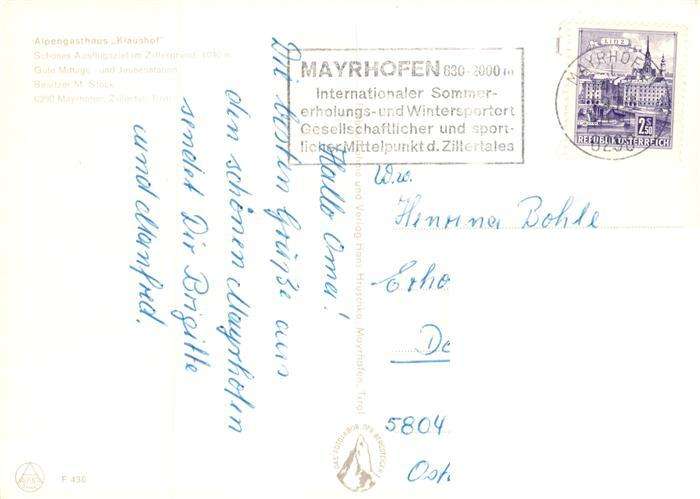 Alpengasthaus „Klaushof"
Schönes Ausflugsziel im Zillergrund,
Gute Mittags- und Jausenstation
Besitzer M.
6290 Mayrhofen, Zillertal, Tirol
MAYRHOFEN 630-2000 m
Internationaler Sommer-
erholungs-und Wintersportort
Gesellschaftlicher und sport-
licher Mittelpunkt d. Zillertales
LINZ
2.50 S
REPUBLIK ÖSTERREICH
MAYRHOFEN
6290
Hallo Oma!
Die besten Grüße aus
den schönen Mayrhofen
sendet Dir Brigitte
und Manfred.
und Verlag Hans Hruschka, Mayrhofen, Tirol
Ww.
Bohle
Erho
De
5804
Ost
F 430